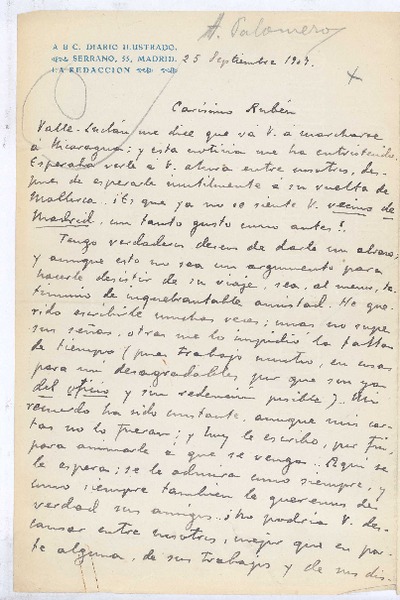 A. Palomero
A B C. DIARIO ILUSTRADO.
SERRANO, 55, MADRID.
LA REDACCION
25 Septiembre 1907.
Carísimo Rubén
Valle-Inclán me dice que va V. a marcharse
a Nicaragua; y esta noticia me ha entristecido.
Esperaba verle a V. ahora entre nosotros, des-
pues de esperarle inutilmente a su vuelta de
Mallorca. ¿Es que ya no se siente V. vecino de
Madrid, con tanto gusto como antes?
Tengo verdaderos deseos de darle un abrazo;
y aunque esto no sea un argumento para
hacerle desistir de su viaje, sea, al menos, tes-
timonio de inquebrantable amistad. He que-
rido escribirle muchas veces; unas no supe
sus señas, otras me lo impidió la falta
de tiempo (pues trabajo mucho, en cosas
para mí desagradables, por que son ya
del oficio y sin redencion posible). Mi
recuerdo ha sido constante, aunque mis car-
tas no lo fueran; y hoy le escribo, por fin,
para animarle a que se venga. Aquí se
le espera; se le admira como siempre, y
como siempre tambien le queremos de
verdad sus amigos. ¿No podría V. des-
cansar entre nosotros, mejor que en par-
te alguna, de sus trabajos y de sus dis-